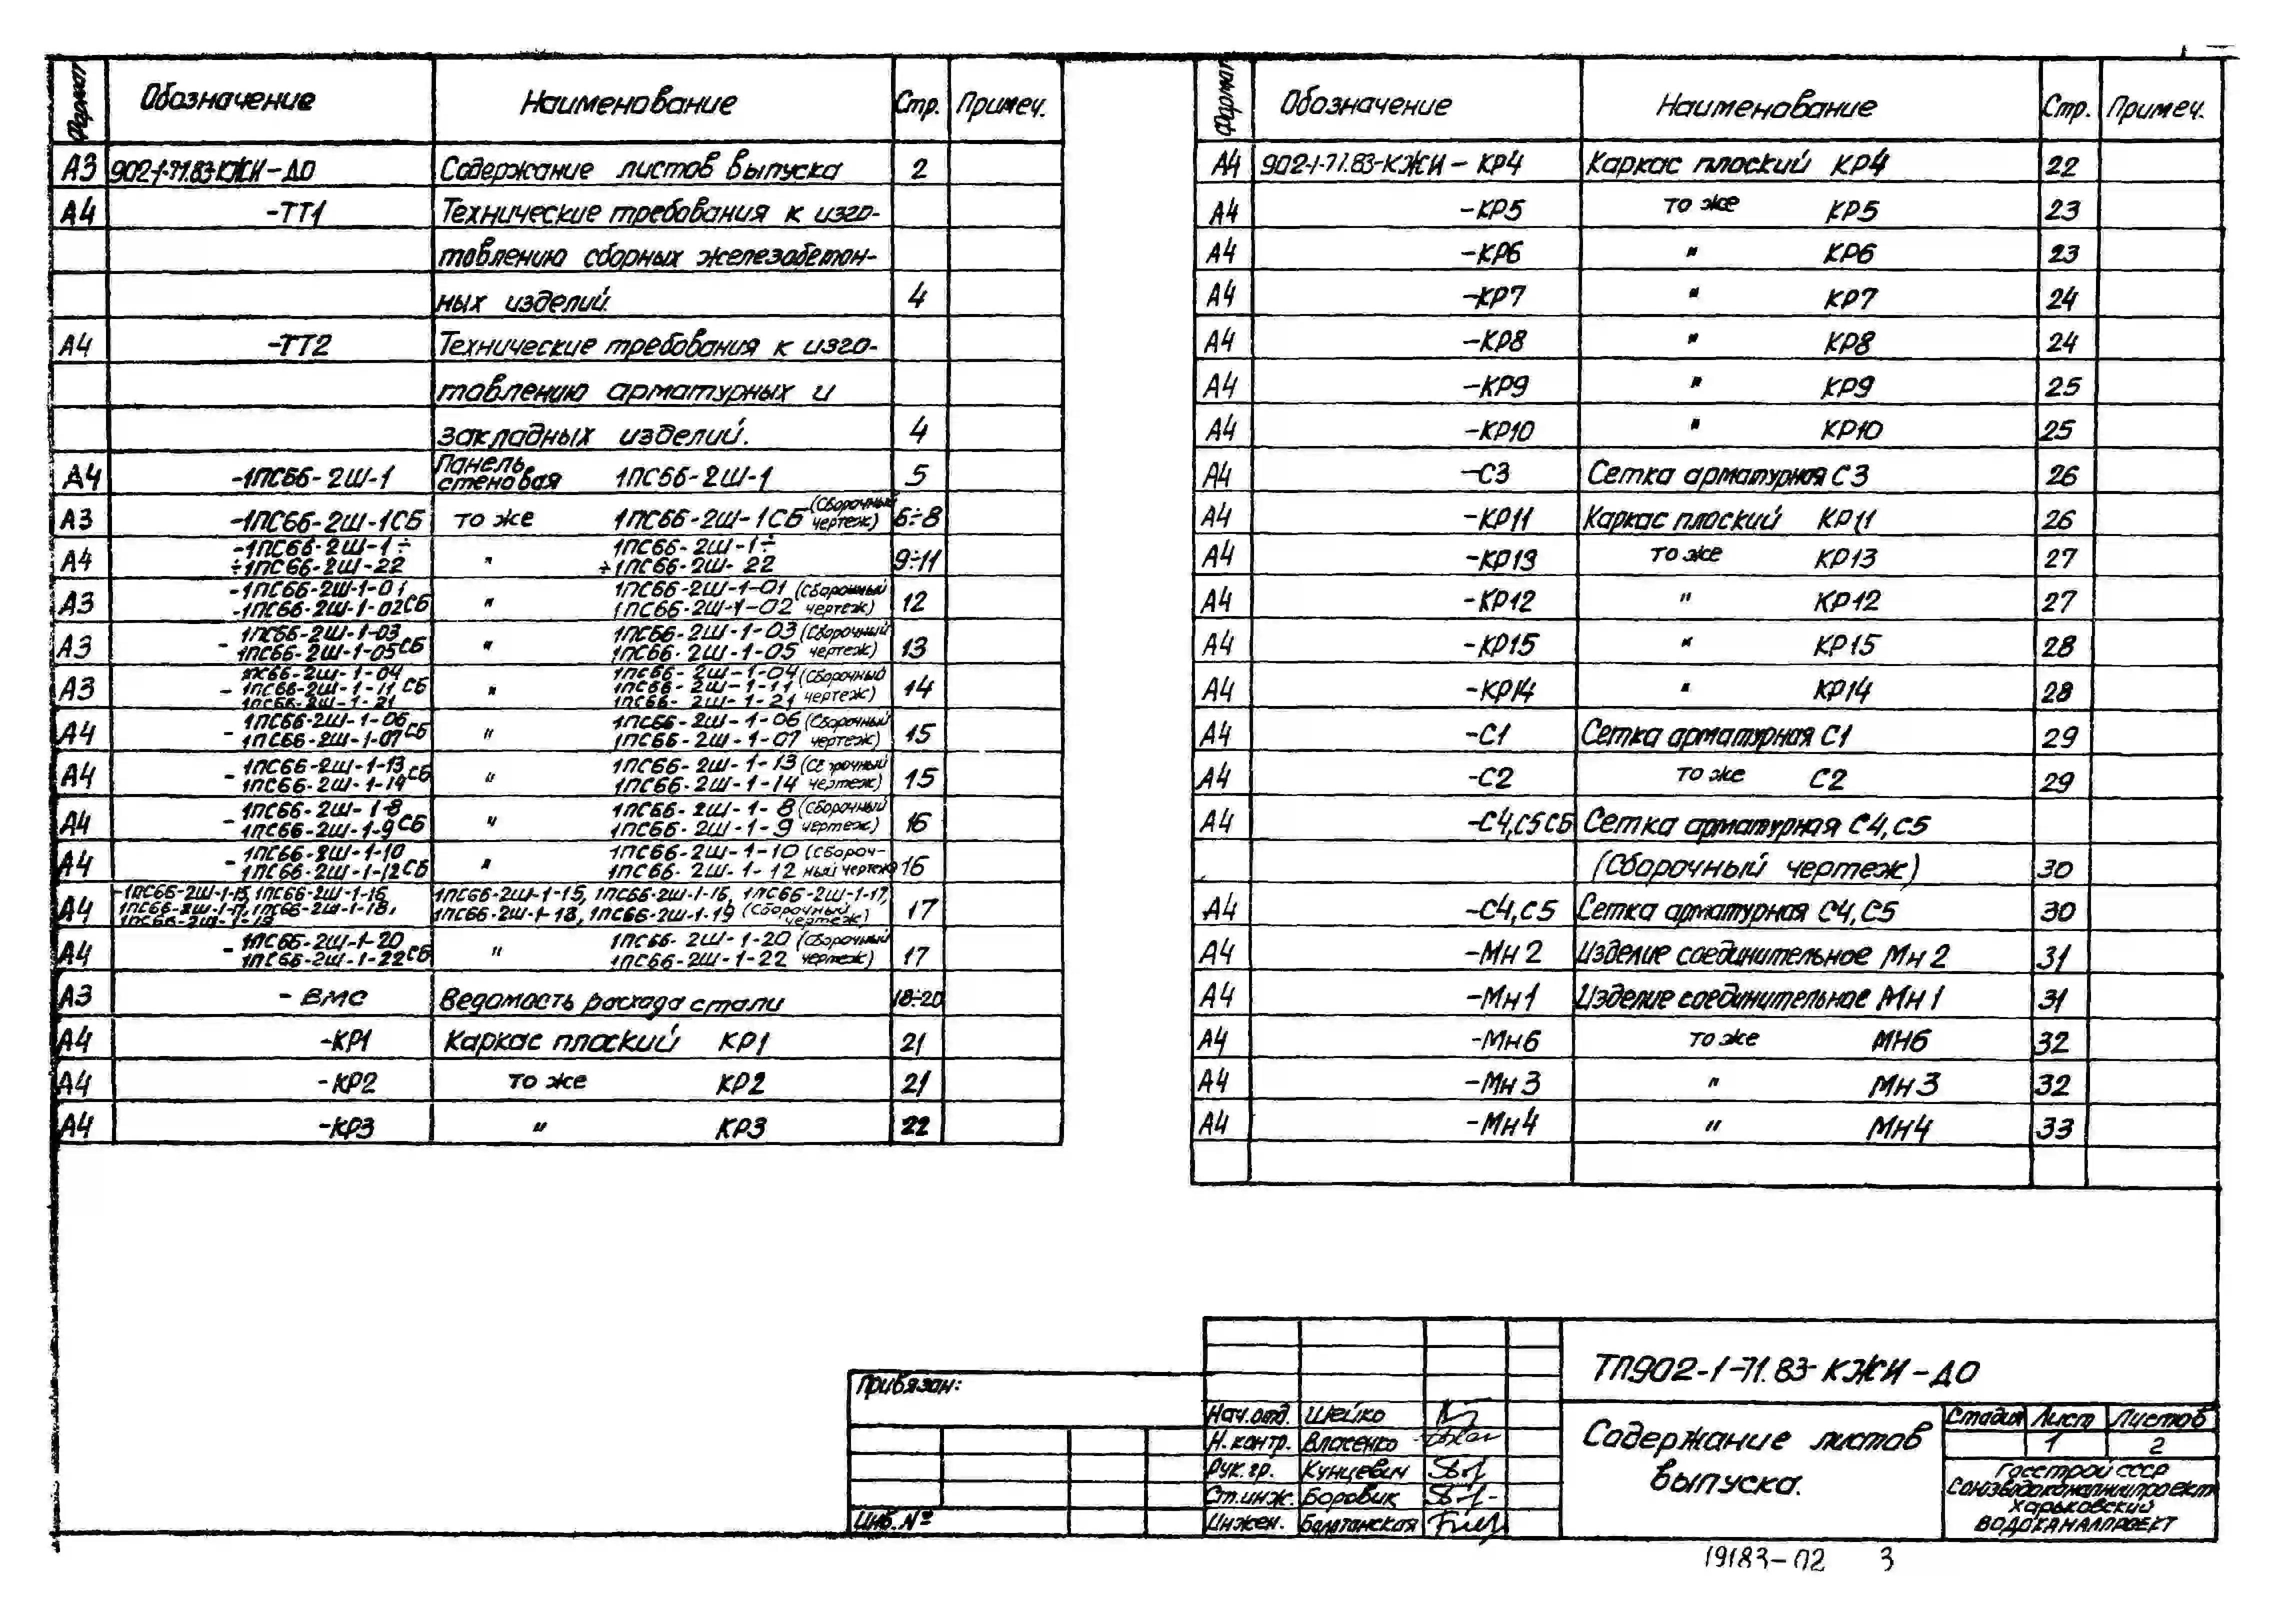 Формат Обозначение Наименование Стр. Примеч.
А3 902-1-71.83-КЖИ-ДО Содержание листов выпуска 2
А4 -ТТ1 Технические требования к изго-
товлению сборных железобетон-
ных изделий. 4
А4 -ТТ2 Технические требования к изго-
товлению арматурных и
закладных изделий. 4
А4 -1ПС66-2Ш-1 Панель стеновая 1ПС66-2Ш-1 5
А3 -1ПС66-2Ш-1СБ то же 1ПС66-2Ш-1СБ (Сборочный чертеж) 6÷8
А4 -1ПС66-2Ш-1÷ ÷1ПС66-2Ш-22 " 1ПС66-2Ш-1÷ ÷1ПС66-2Ш-22 9÷11
А3 -1ПС66-2Ш-1-01 -1ПС66-2Ш-1-02СБ " 1ПС66-2Ш-1-01 1ПС66-2Ш-1-02 (Сборочный чертеж) 12
А3 - 1ПС66-2Ш-1-03 1ПС66-2Ш-1-05СБ " 1ПС66-2Ш-1-03 1ПС66-2Ш-1-05 (Сборочный чертеж) 13
А3 - 1ПС66-2Ш-1-04 1ПС66-2Ш-1-11 СБ 1ПС66-2Ш-1-21 " 1ПС66-2Ш-1-04 1ПС66-2Ш-1-11 1ПС66-2Ш-1-21 (Сборочный чертеж) 14
А4 - 1ПС66-2Ш-1-06 1ПС66-2Ш-1-07СБ " 1ПС66-2Ш-1-06 1ПС66-2Ш-1-07 (Сборочный чертеж) 15
А4 - 1ПС66-2Ш-1-13 1ПС66-2Ш-1-14СБ " 1ПС66-2Ш-1-13 1ПС66-2Ш-1-14 (Сборочный чертеж) 15
А4 - 1ПС66-2Ш-1-8 1ПС66-2Ш-1-9СБ " 1ПС66-2Ш-1-8 1ПС66-2Ш-1-9 (Сборочный чертеж) 16
А4 - 1ПС66-2Ш-1-10 1ПС66-2Ш-1-12СБ " 1ПС66-2Ш-1-10 1ПС66-2Ш-1-12 (Сбороч- ный чертеж) 16
А4 -1ПС66-2Ш-1-15, 1ПС66-2Ш-1-16, 1ПС66-2Ш-1-17, 1ПС66-2Ш-1-18, 1ПС66-2Ш-1-19 1ПС66-2Ш-1-15, 1ПС66-2Ш-1-16, 1ПС66-2Ш-1-17, 1ПС66-2Ш-1-18, 1ПС66-2Ш-1-19 (Сборочный чертеж) 17
А4 - 1ПС66-2Ш-1-20 1ПС66-2Ш-1-22СБ " 1ПС66-2Ш-1-20 1ПС66-2Ш-1-22 (Сборочный чертеж) 17
А3 - ВМС Ведомость расхода стали 18÷20
А4 -КР1 Каркас плоский КР1 21
А4 -КР2 то же КР2 21
А4 -КР3 " КР3 22
Формат Обозначение Наименование Стр. Примеч.
А4 902-1-71.83-КЖИ-КР4 Каркас плоский КР4 22
А4 -КР5 то же КР5 23
А4 -КР6 " КР6 23
А4 -КР7 " КР7 24
А4 -КР8 " КР8 24
А4 -КР9 " КР9 25
А4 -КР10 " КР10 25
А4 -С3 Сетка арматурная С3 26
А4 -КР11 Каркас плоский КР11 26
А4 -КР13 то же КР13 27
А4 -КР12 " КР12 27
А4 -КР15 " КР15 28
А4 -КР14 " КР14 28
А4 -С1 Сетка арматурная С1 29
А4 -С2 то же С2 29
А4 -С4,С5СБ Сетка арматурная С4,С5
(Сборочный чертеж) 30
А4 -С4,С5 Сетка арматурная С4,С5 30
А4 -Мн2 Изделие соединительное Мн2 31
А4 -Мн1 Изделие соединительное Мн1 31
А4 -Мн6 то же МН6 32
А4 -Мн3 " Мн3 32
А4 -Мн4 " Мн4 33
Привязан:
Инв.№
Нач.отд. Шейко
Н.контр. Власенко
Рук.гр. Кунцевич
Ст.инж. Боровик
Инжен.
ТП902-1-71.83-КЖИ-ДО
Содержание листов
выпуска.
Стадия Лист Листов
1 2
Госстрой СССР
Союзводоканалниипроект
Харьковский
ВОДОКАНАЛПРОЕКТ
19183-02 3